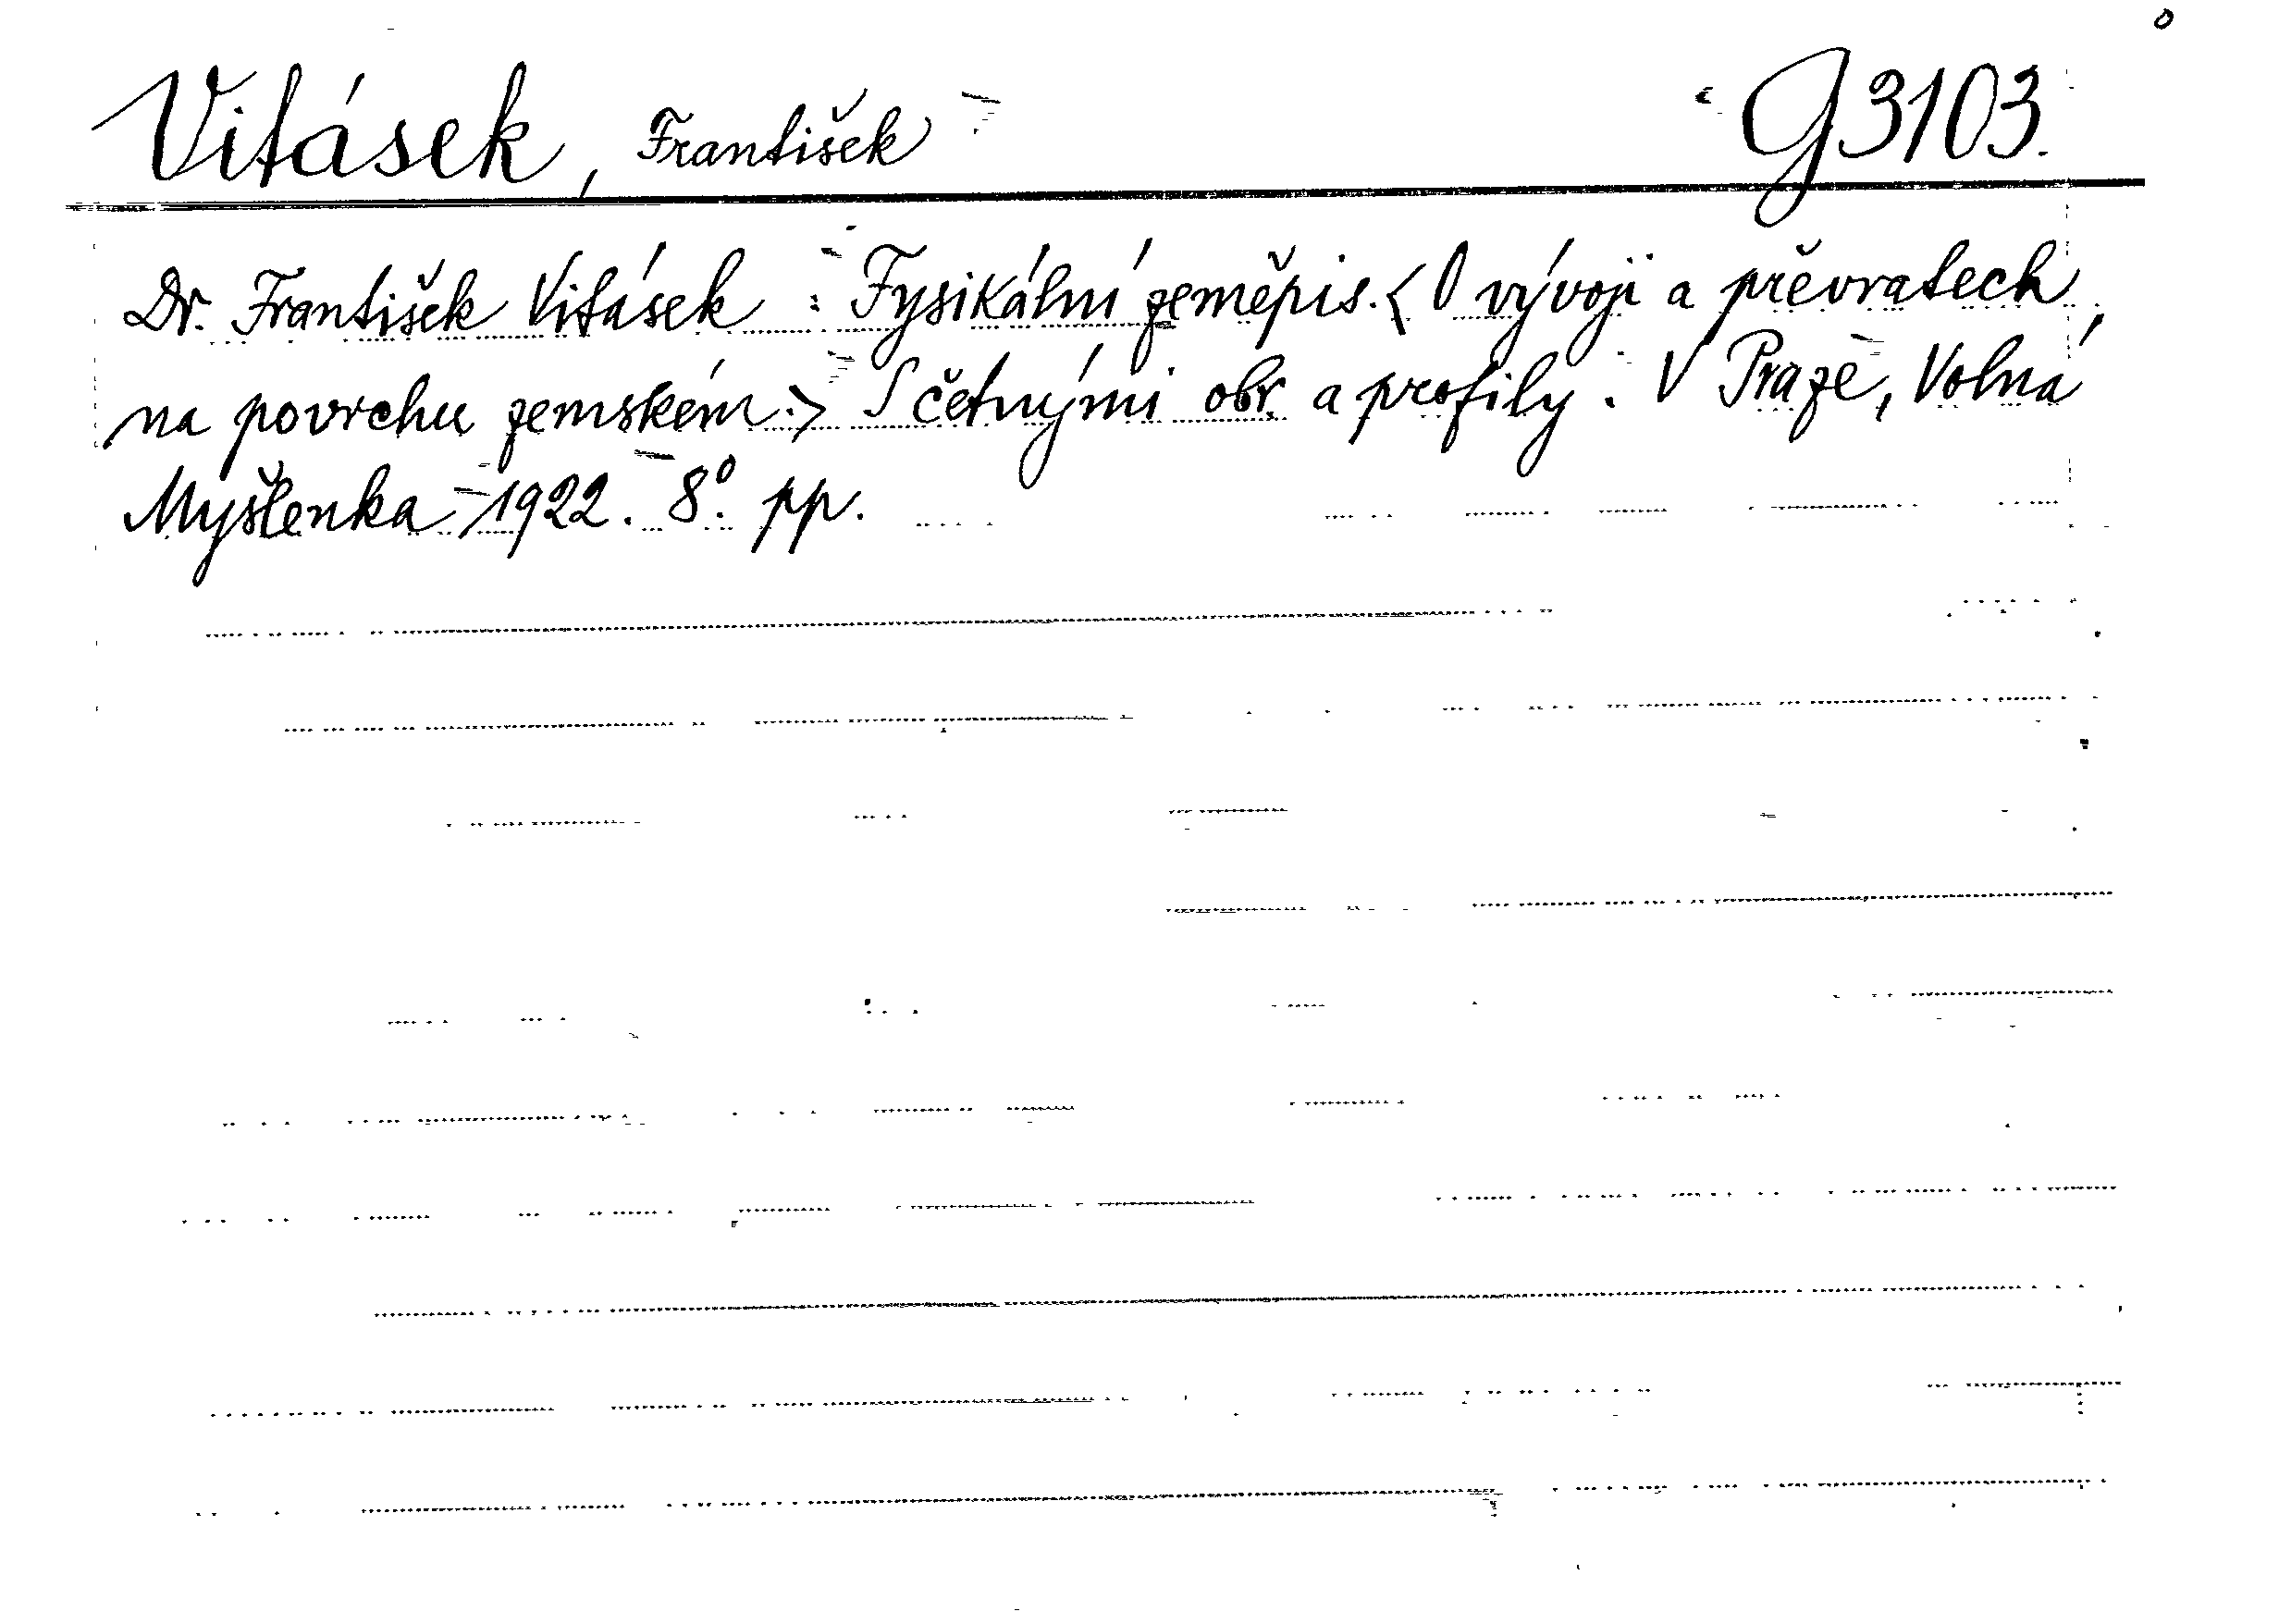 Vitásek, František G3103.
Dr. František Vitásek : Fysikální zeměpis. < O vývoji a převratech
na povrchu zemském.> S četnými obr. a profily. V Praze, Volná
Myšlenka 1922. 8°. pp.